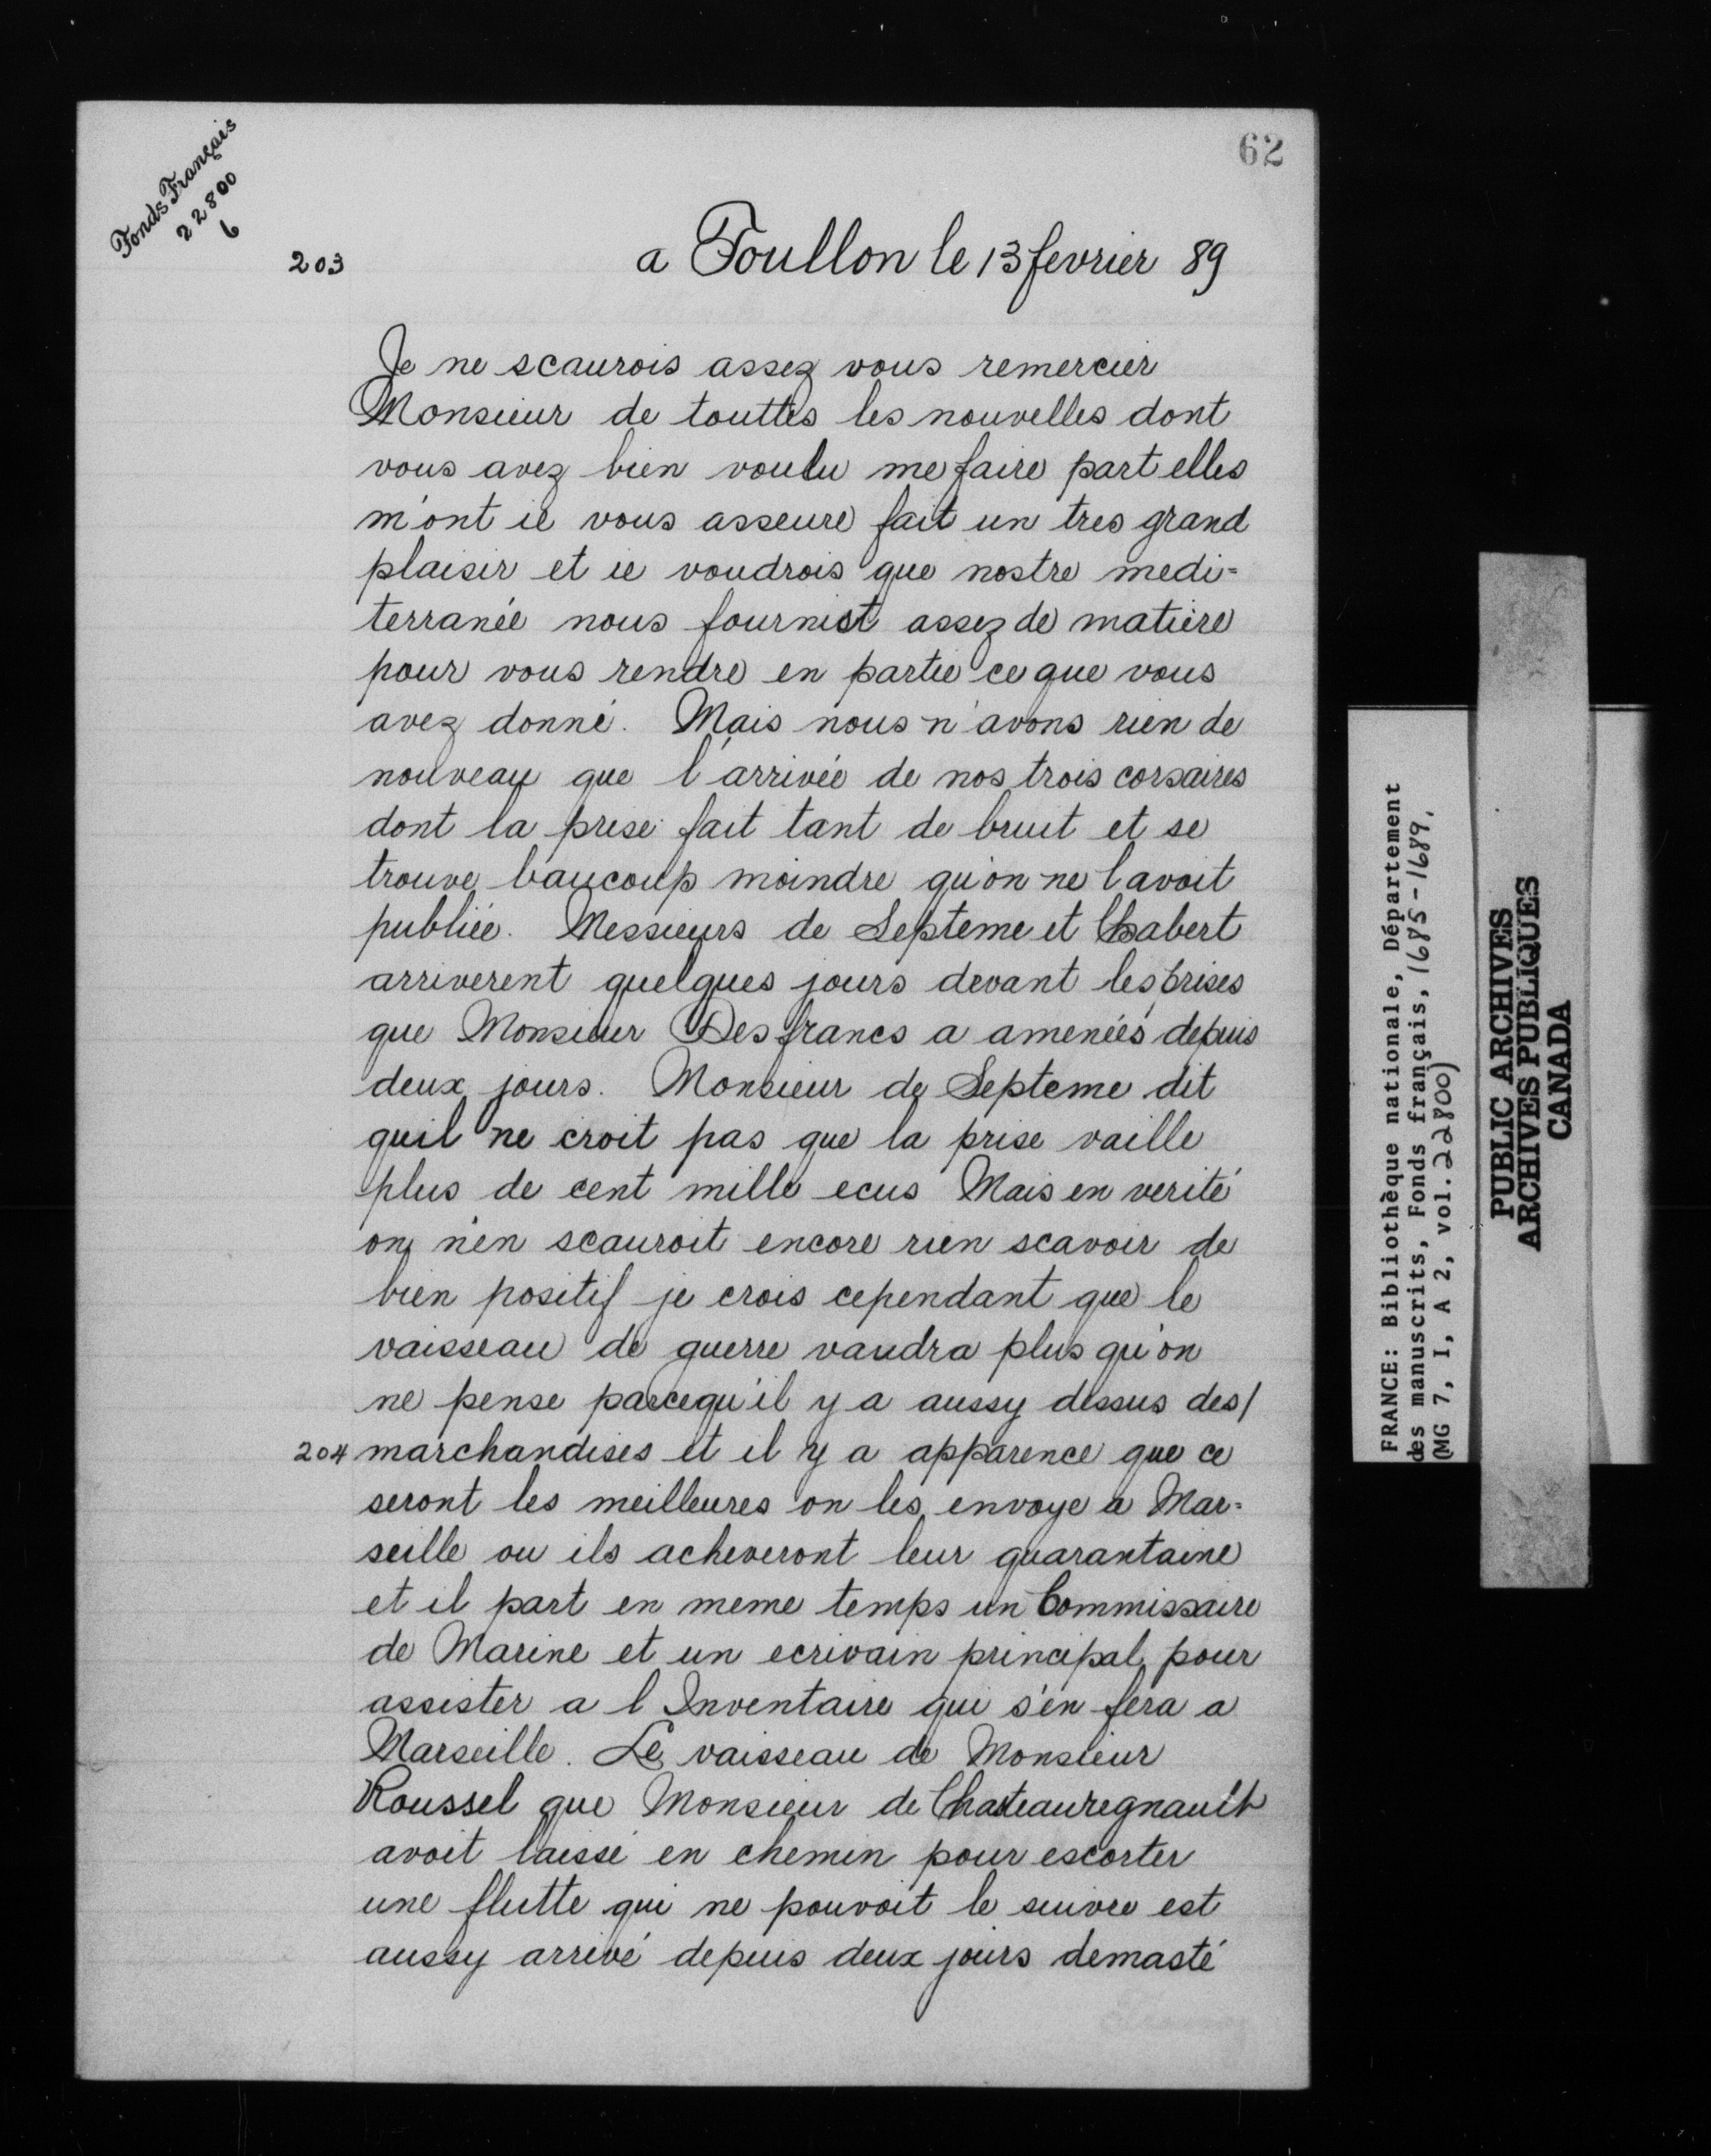 62
Fonds Français
22800
6
203
a Toullon le 13 fevrier 89
Je ne scaurois assez vous remercier
Monsieur de touttes les nouvelles dont
vous avez bien voulu me faire part elles
m'ont ie vous asseure fait un tres grand
plaisir et ie voudrois que nostre medi=
terranée nous fournist assez de matiere
pour vous rendre en partie ce que vous
avez donné. Mais nous n'avons rien de
nouveau que l'arrivée de nos trois corsaires
dont la prise fait tant de bruit et se
trouve baucoup moindre qu'on ne l avoit
publiée. Messieurs de Septeme et Chabert
arriverent quelques jours devant les prises
que Monsieur Desfrancs a amenées depuis
deux jours. Monsieur de Septeme dit
quil ne croit pas que la prise vaille
plus de cent mille ecus Mais en verité
on n'en scauroit encore rien scavoir de
bien positif je crois cependant que le
vaisseau de guerre vaudra plus qu'on
ne pense parcequ'il y a aussy dessus des/
204 marchandises et il y a apparence que ce
seront les meilleures on les envoye a Mar=
seille ou ils acheveront leur quarantaine
et il part en meme temps un Commissaire
de Marine et un ecrivain principal pour
assister a l Inventaire qui s'en fera a
Marseille. Le vaisseau de Monsieur
Roussel que Monsieur de Chasteauregnault
avoit laissé en chemin pour escorter
une flutte qui ne pouvoit le suivre est
aussy arrivé depuis deux jours demasté
FRANCE: Bibliothèque nationale, Département
des manuscrits, Fonds français, 1685-1689.
(MG 7, I, A 2, vol. 22800)
PUBLIC ARCHIVES
ARCHIVES PUBLIQUES
CANADA